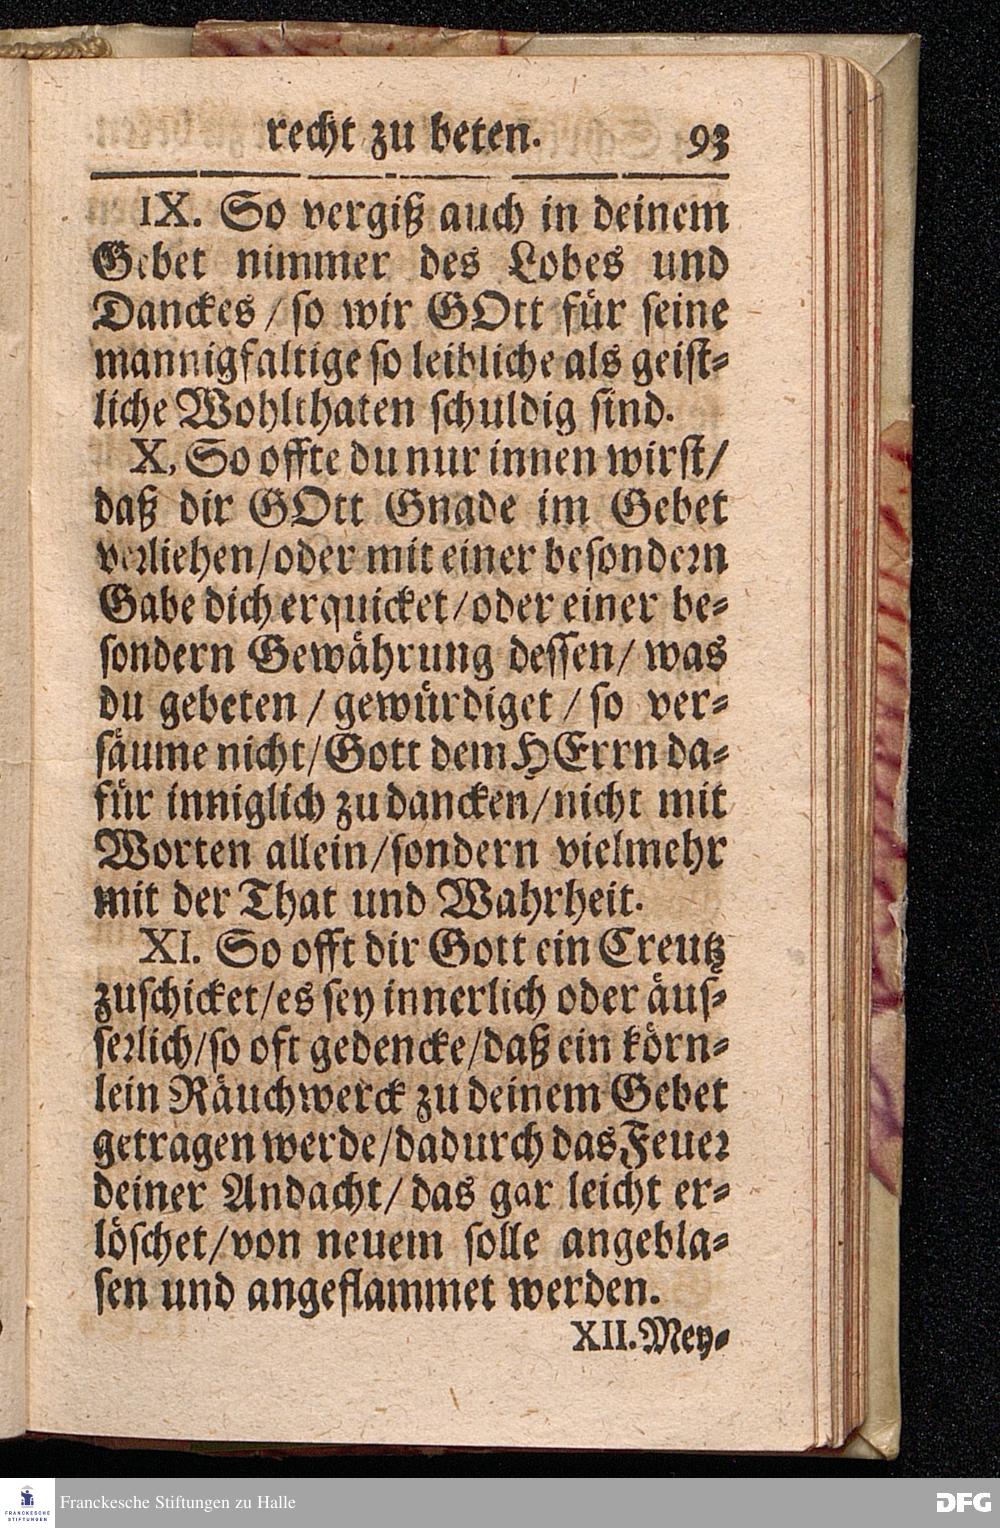 recht zu beten. 93
IX. So vergiß auch in deinem
Gebet nimmer des Lobes und
Danckes / so wir GOtt für seine
mannigfaltige so leibliche als geist-
liche Wohlthaten schuldig sind.
X. So offte du nur innen wirst/
daß dir GOtt Gnade im Gebet
verliehen/oder mit einer besondern
Gabe dich erquicket/oder einer be-
sondern Gewährung dessen/ was
du gebeten / gewürdiget / so ver-
säume nicht/Gott dem HErrn da-
für inniglich zu dancken/nicht mit
Worten allein/sondern vielmehr
mit der That und Wahrheit.
XI. So offt dir Gott ein Creutz
zuschicket/es sey innerlich oder äus-
serlich/so oft gedencke/daß ein körn-
lein Räuchwerck zu deinem Gebet
getragen werde/dadurch das Feuer
deiner Andacht/ das gar leicht er-
löschet/von neuem solle angebla-
sen und angeflammet werden.
XII. Mey-
FRANCKESCHE
STIFTUNGEN
Franckesche Stiftungen zu Halle
DFG